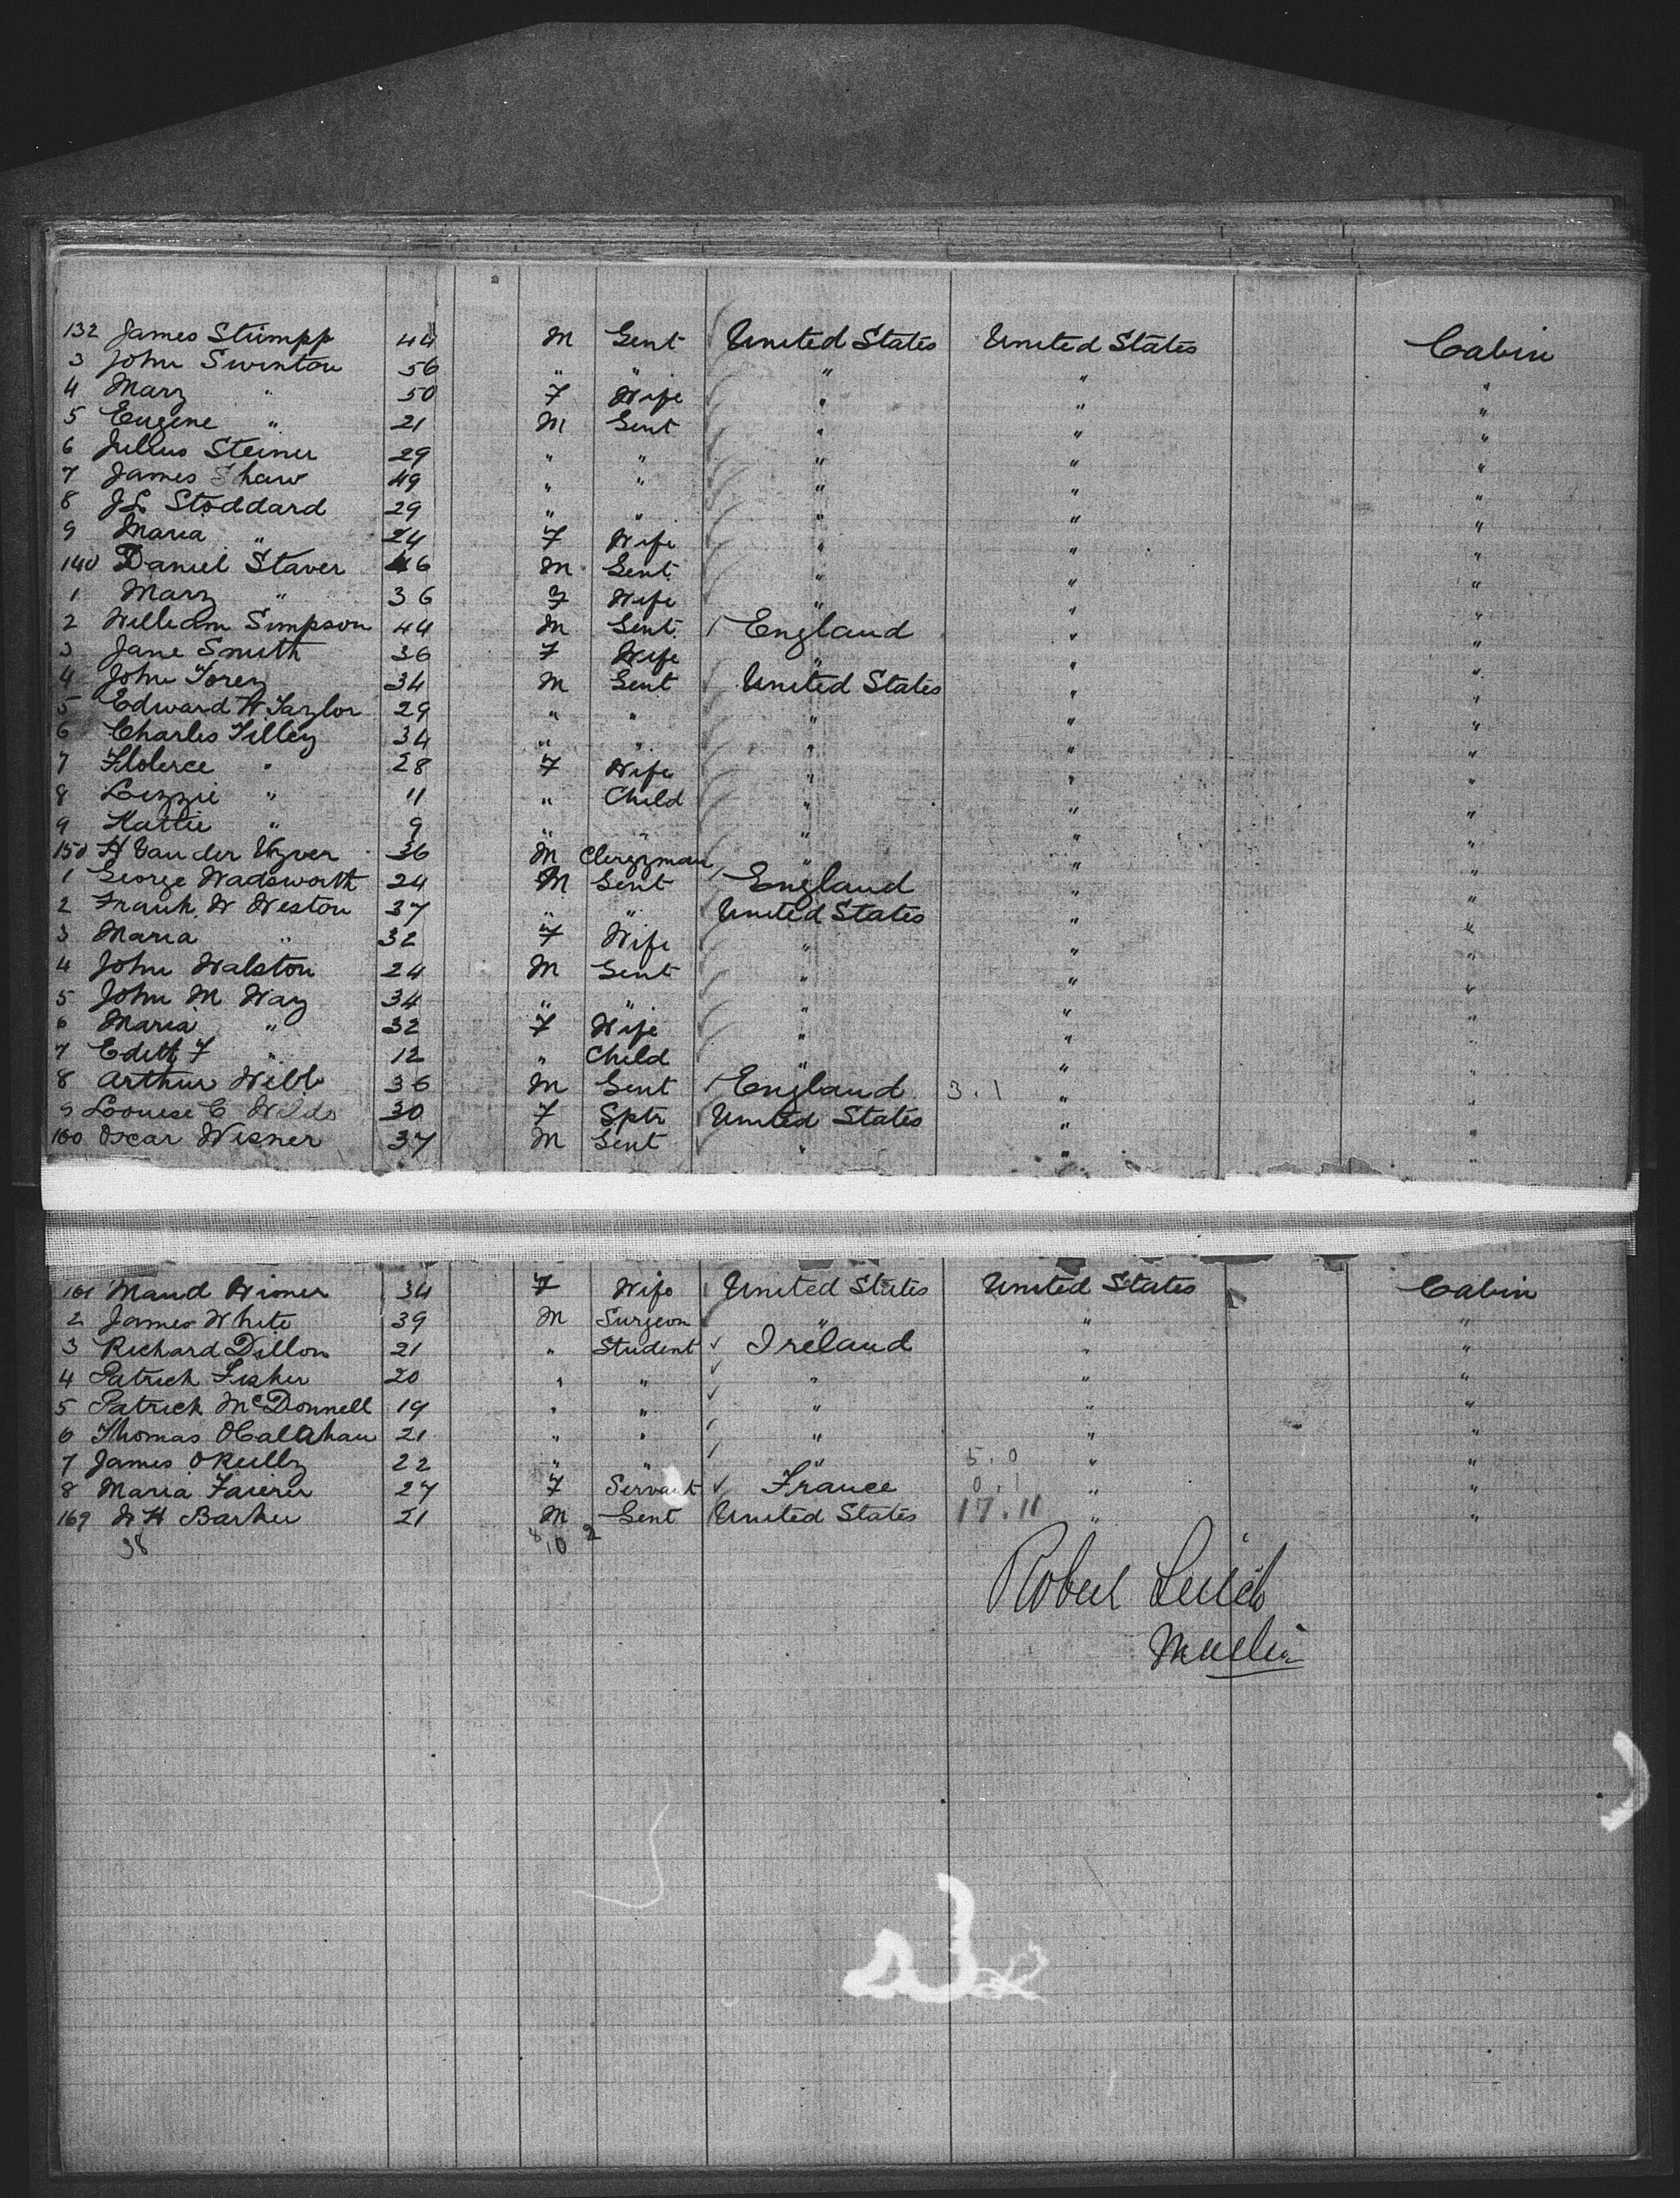 132 James Stumpp 44 M Gent United States United States Cabin
3 John Swinton 56 " " " " "
4 Mary " 50 F Wife " " "
5 Eugene " 21 M Gent " " "
6 Julius Steiner 29 " " " " "
7 James Shaw 49 " " " " "
8 JL Stoddard 29 " " " " "
9 Maria " 24 F Wife " " "
140 Daniel Staver 46 M Gent " " "
1 Mary " 36 F Wife " " "
2 William Simpson 44 M Gent England " "
3 Jane Smith 36 F Wife " " "
4 John Torey 34 M Gent United States " "
5 Edward W Taylor 29 " " " " "
6 Charles Tilley 34 " " " " "
7 Floderce " 28 F Wife " " "
8 Lizzie " 11 " Child " " "
9 Hattie " 9 " " " " "
150 H Van der Vyver 36 M Clergyman " " "
1 George Wadsworth 24 M Gent England " "
2 Frank W Weston 37 " " United States " "
3 Maria " 32 F Wife " " "
4 John Walston 24 M Gent " " "
5 John M Way 34 " " " " "
6 Maria " 32 F Wife " " "
7 Edith F " 12 " Child " " "
8 Arthur Webb 36 M Gent England 3.1 " "
9 Louise C Wilds 30 F Sptr United States " "
160 Oscar Wisner 37 M Gent " " "
161 Maud Wisner 34 F Wife United States United States Cabin
2 James White 39 M Surgeon " " "
3 Richard Dillon 21 " Student Ireland " "
4 Patrick Fisher 20 " " " " "
5 Patrick McDonnell 19 " " " " "
6 Thomas OCallahan 21 " " " " "
7 James OReilly 22 " " " 5.0 " "
8 Maria Faierer 27 F Servant France 0.1 " "
169 W H Barker 21 M Gent United States 17.11 " "
38 8 10 2
Robert Leitch